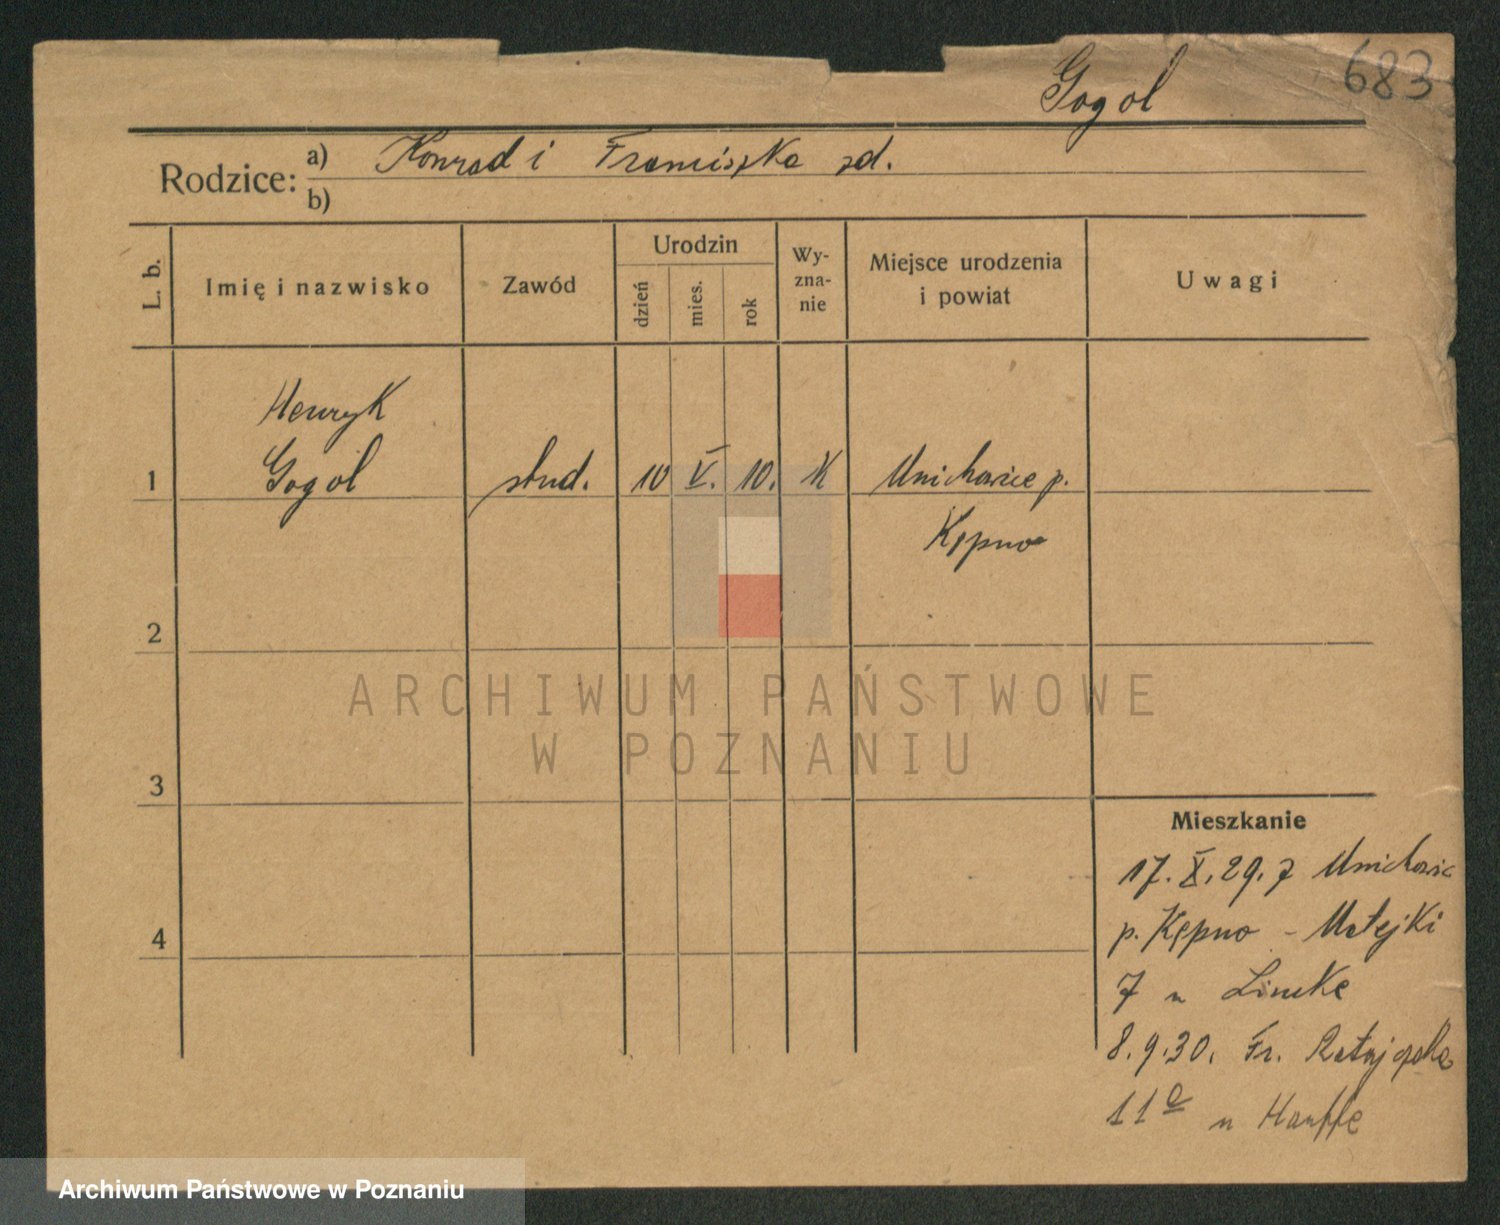 Gogol
683
Rodzice: a) Konrad i Franciszka zd.
b)
L. b.
Imię i nazwisko
Zawód
Urodzin
dzień
mies.
rok
Wy-
zna-
nie
Miejsce urodzenia
i powiat
Uwagi
Henryk
1 Gogol stud. 10 V. 10. K Mnichowice p.
Kępno
2
3
4
Mieszkanie
17. X. 29. z Mnichowic
p. Kępno - Matejki
7 u
8.9.30. Fr. Ratajczaka
11a u
ARCHIWUM PAŃSTWOWE
W POZNANIU
Archiwum Państwowe w Poznaniu